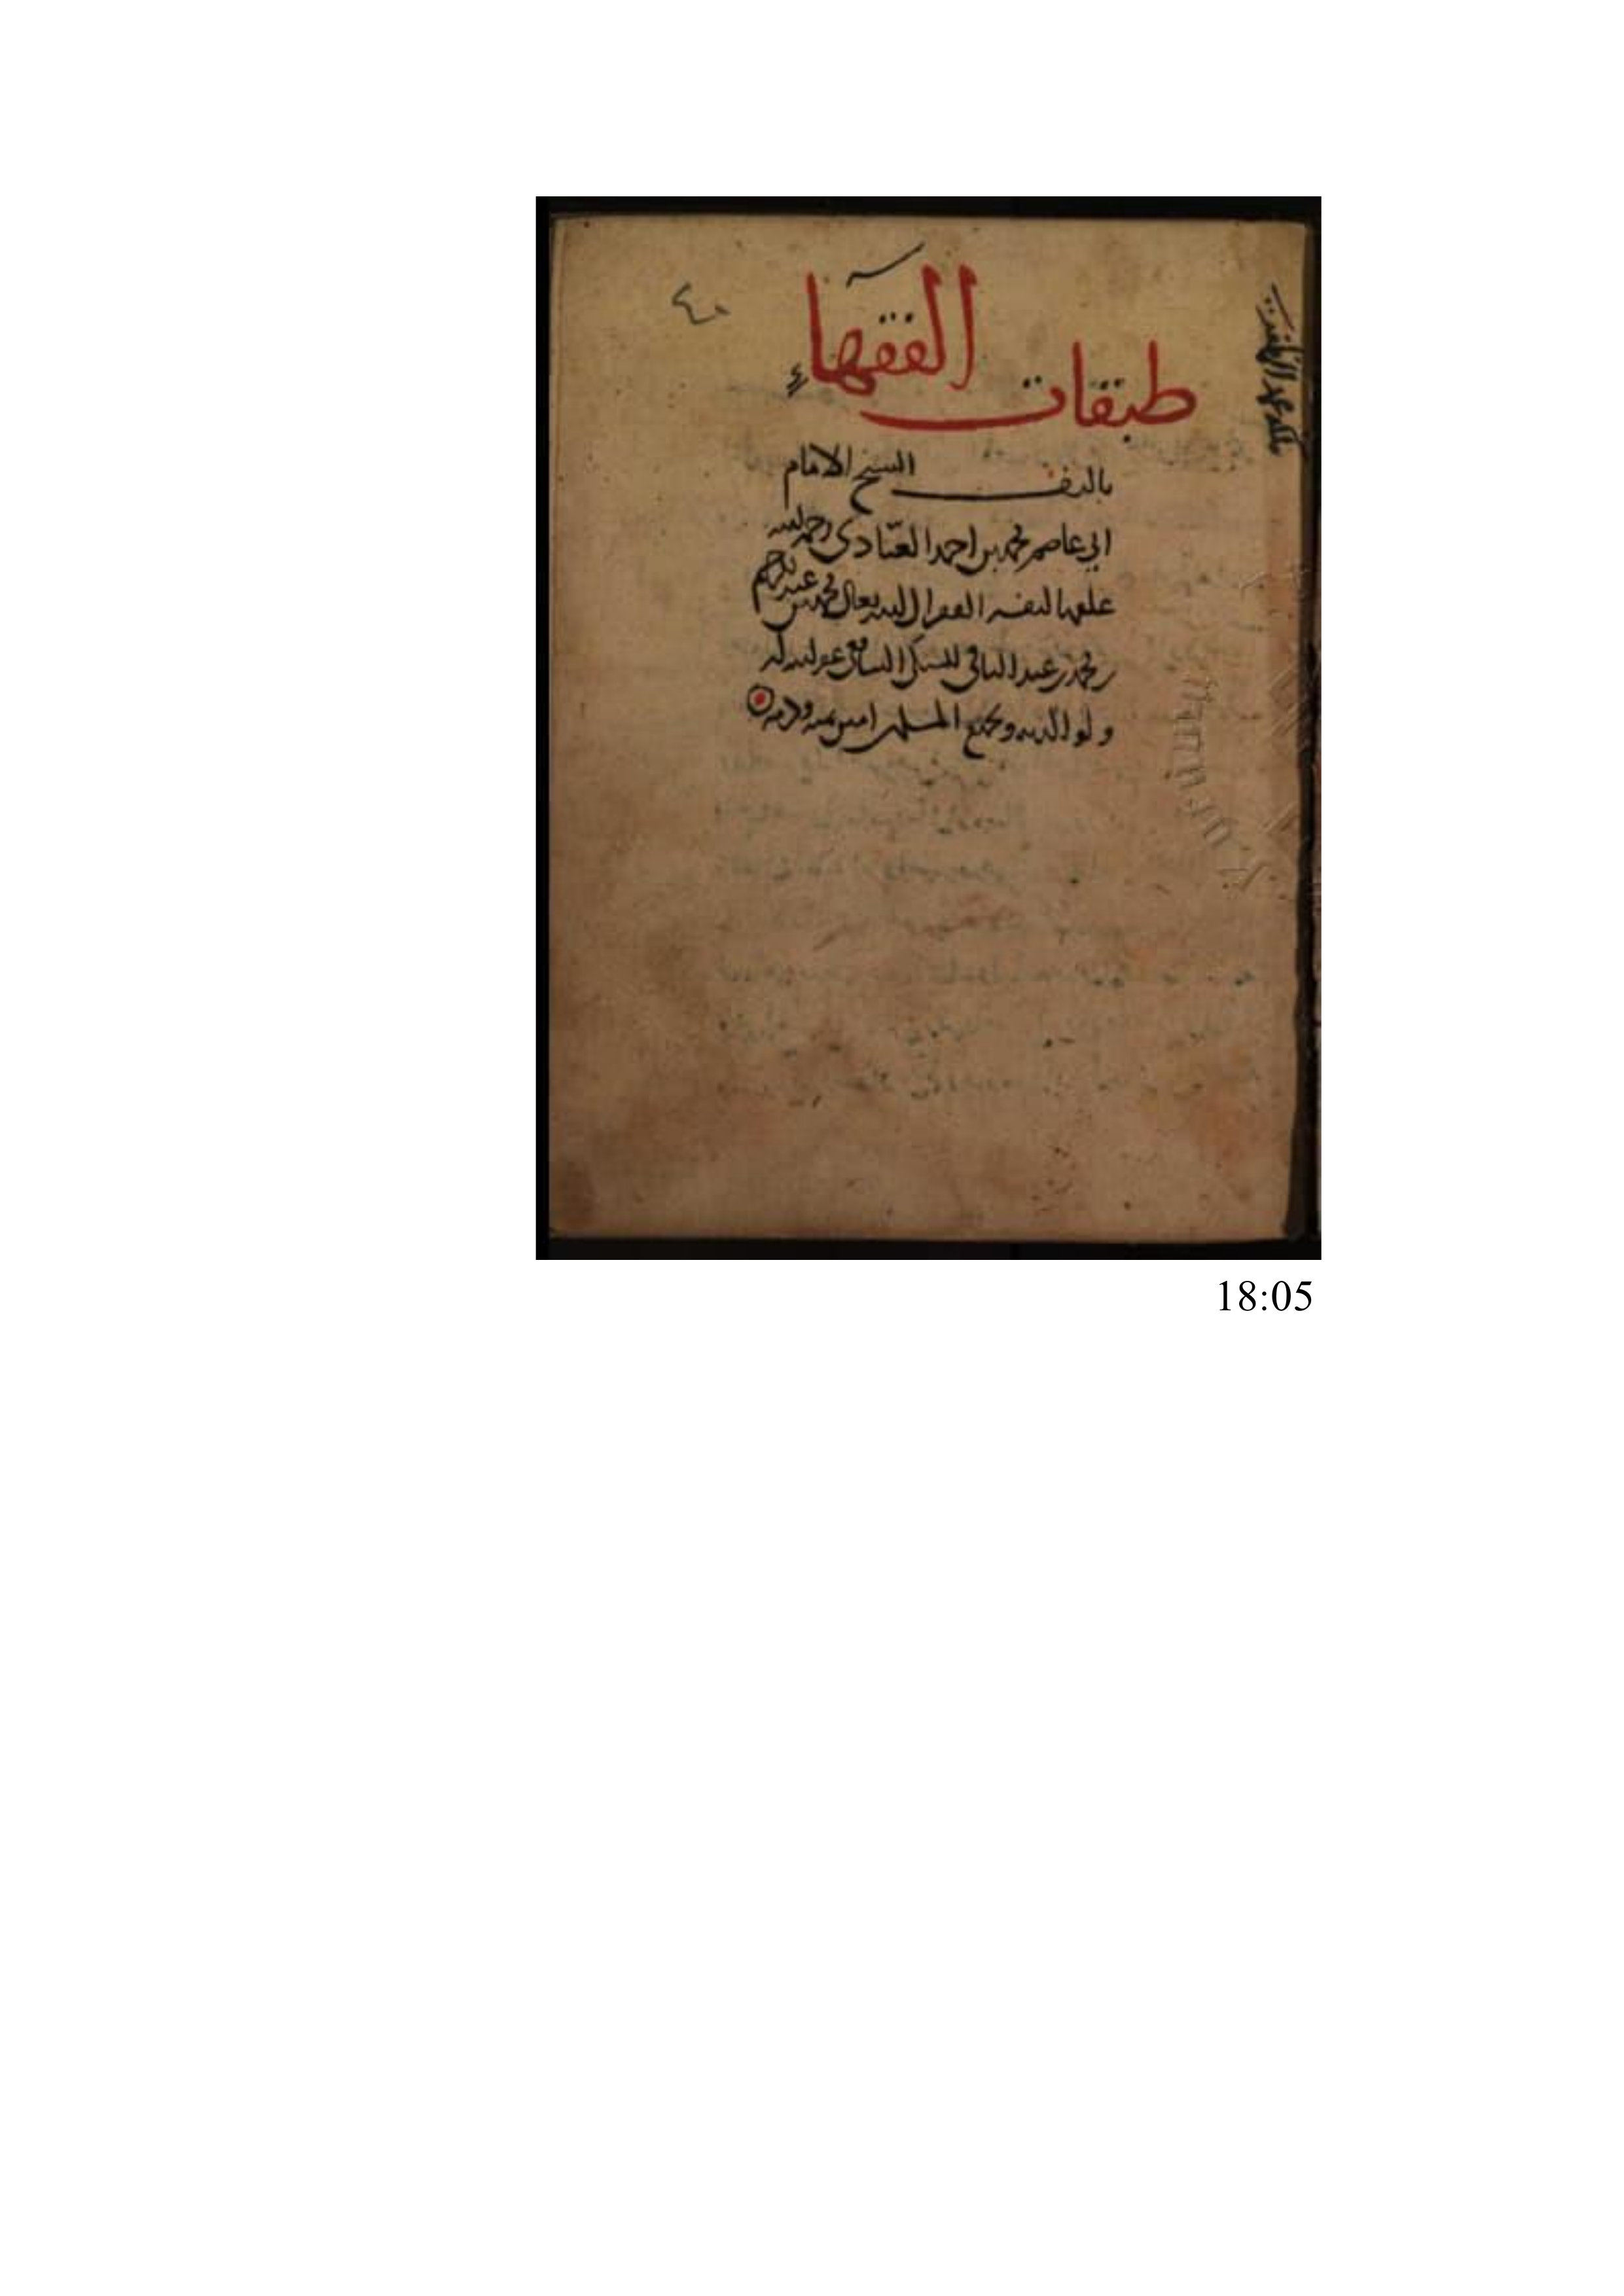 ٤٠
طبقات الفقهاء
تاليف الشيخ الامام
ابي عاصم محمد بن احمد العبّادي رحمه الله
علقها لنفسه الفقير الى الله تعالى محمد بن عبد الرحيم
بن محمد بن عبد الباقي السبكي الشافعي غفر الله له
ولوالديه ولجميع المسلمين امين بمنه وكرمه
18:05